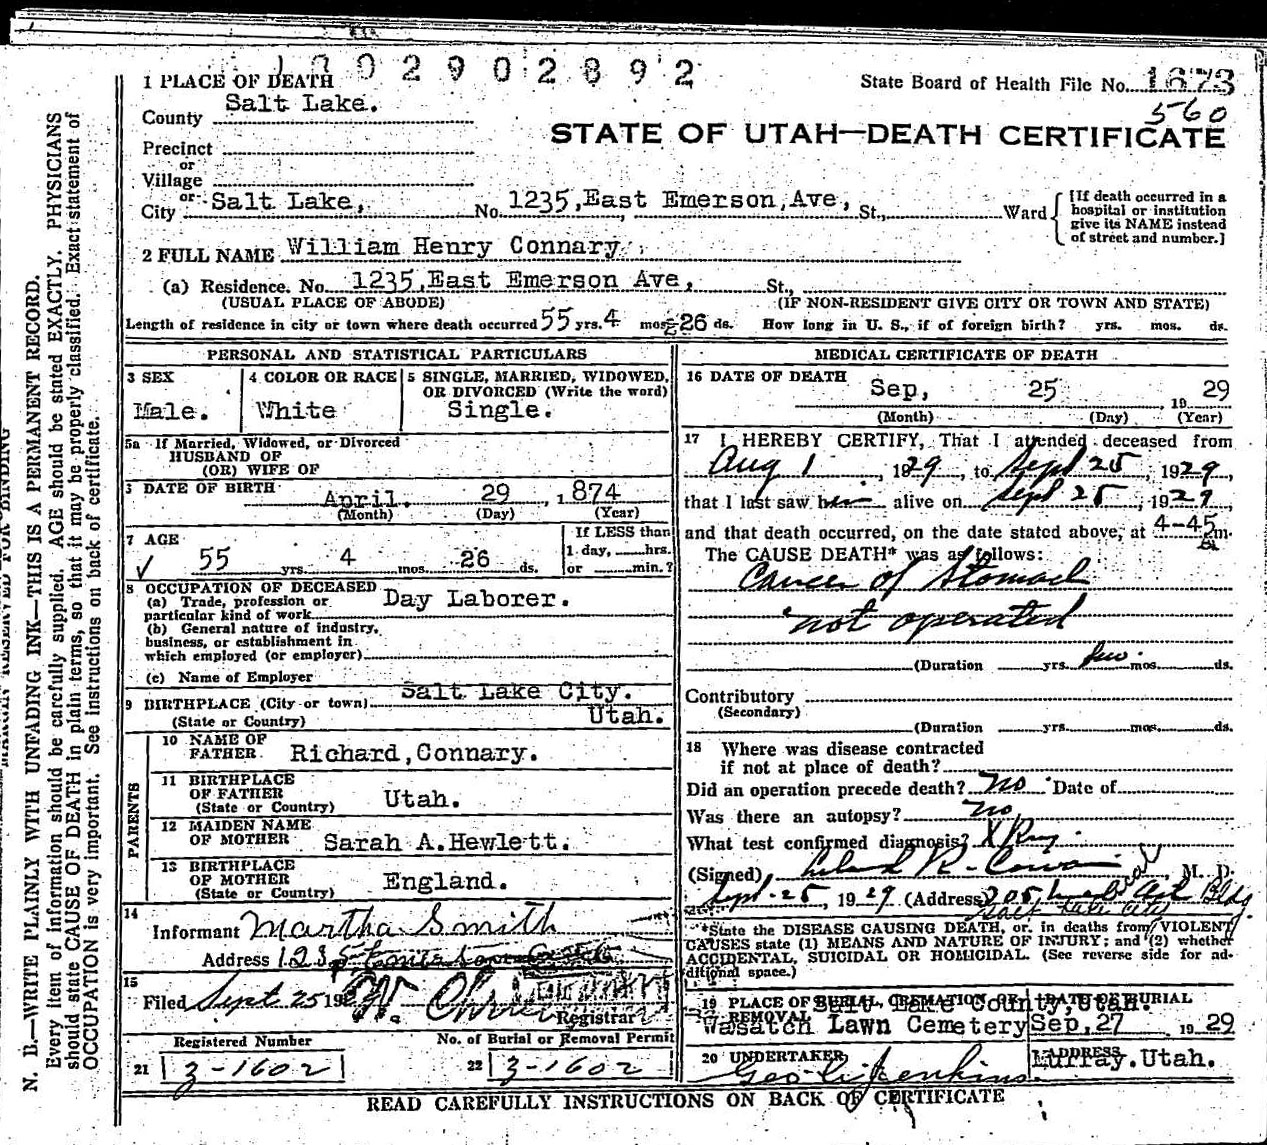 1 PLACE OF DEATH
2902892
State Board of Health File No. 1673
560
County Salt Lake.
STATE OF UTAH—DEATH CERTIFICATE
Precinct
or
Village
or
City Salt Lake, No. 1235, East Emerson, Ave, St., Ward
[If death occurred in a hospital or institution give its NAME instead of street and number.]
2 FULL NAME William Henry Connary.
(a) Residence. No. 1235, East Emerson Ave, St.,
(USUAL PLACE OF ABODE) (IF NON-RESIDENT GIVE CITY OR TOWN AND STATE)
Length of residence in city or town where death occurred 55 yrs. 4 mos. 26 ds. How long in U. S., if of foreign birth? yrs. mos. ds.
PERSONAL AND STATISTICAL PARTICULARS
3 SEX
Male.
4 COLOR OR RACE
White
5 SINGLE, MARRIED, WIDOWED,
OR DIVORCED (Write the word)
Single.
5a If Married, Widowed, or Divorced
HUSBAND OF
(OR) WIFE OF
DATE OF BIRTH
April. 29 , 1874
(Month) (Day) (Year)
7 AGE
55 yrs. 4 mos. 26 ds.
If LESS than
1 day, hrs.
or min.?
8 OCCUPATION OF DECEASED
(a) Trade, profession or
particular kind of work
Day Laborer.
(b) General nature of industry,
business, or establishment in
which employed (or employer)
(c) Name of Employer
9 BIRTHPLACE (City or town) Salt Lake City.
(State or Country) Utah.
PARENTS
10 NAME OF
FATHER Richard, Connary.
11 BIRTHPLACE
OF FATHER
(State or Country) Utah.
12 MAIDEN NAME
OF MOTHER Sarah A. Hewlett.
13 BIRTHPLACE
OF MOTHER
(State or Country) England.
14
Informant Martha Smith
Address 1235
15
Filed Sept. 25 19 W.
Registrar
Registered Number
21 3-1602
No. of Burial or Removal Permit
22 3-1602
MEDICAL CERTIFICATE OF DEATH
16 DATE OF DEATH
Sep, 25 , 19 29
(Month) (Day) (Year)
17 I HEREBY CERTIFY, That I attended deceased from
Aug 1 , 1929 , to Sept 25 , 1929,
that I last saw him alive on Sept 25 , 1929
and that death occurred, on the date stated above, at 4-45 A m.
The CAUSE DEATH* was as follows:
Cancer of Stomach
not operated
(Duration yrs. few mos. ds.
Contributory
(Secondary)
(Duration yrs. mos. ds.
18 Where was disease contracted
if not at place of death?
Did an operation precede death? No Date of
Was there an autopsy? no
What test confirmed diagnosis? X Ray.
(Signed) Leland R. Cowan , M. D.
Sept-25, 1929 (Address) 205 Medical Art Bldg.
Salt Lake City
*State the DISEASE CAUSING DEATH, or, in deaths from VIOLENT
CAUSES state (1) MEANS AND NATURE OF INJURY; and (2) whether
ACCIDENTAL, SUICIDAL OR HOMICIDAL. (See reverse side for ad-
ditional space.)
19 PLACE OF BURIAL, CREMATION OR
REMOVAL
DATE OF BURIAL
Salt Lake County, Utah.
Wasatch Lawn Cemetery Sep, 27 19 29
20 UNDERTAKER
ADDRESS
Jenkins. Murray. Utah.
READ CAREFULLY INSTRUCTIONS ON BACK OF CERTIFICATE
MARGIN RESERVED FOR BINDING
N. B.—WRITE PLAINLY WITH UNFADING INK—THIS IS A PERMANENT RECORD.
Every item of information should be carefully supplied. AGE should be stated EXACTLY. PHYSICIANS
should state CAUSE OF DEATH in plain terms, so that it may be properly classified. Exact statement of
OCCUPATION is very important. See instructions on back of certificate.